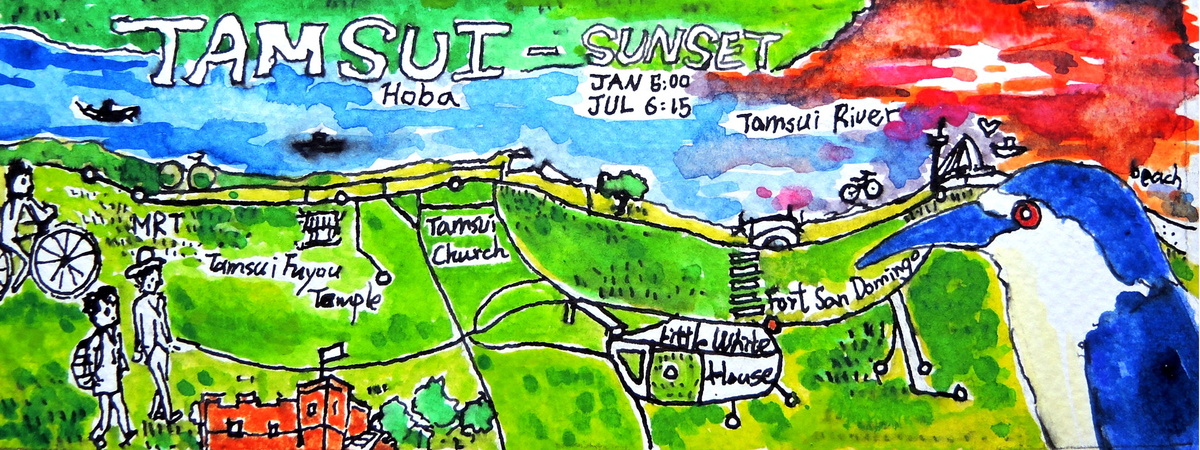 TAMSUI - SUNSET
Hoba
JAN 5:00
JUL 6:15
Tamsui River
beach
MRT
Tamsui Fuyou
Temple
Tamsui
Church
Fort San Domingo
Little White
House